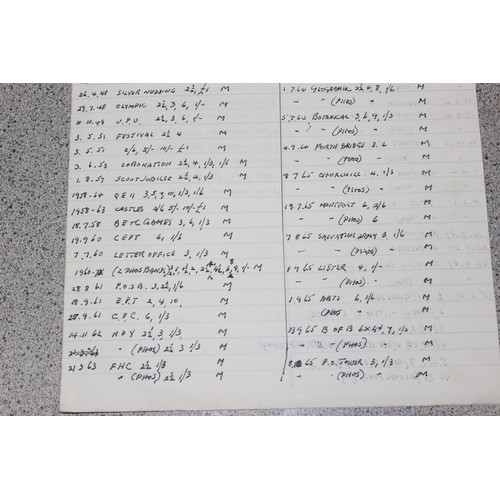 26.4.48 SILVER WEDDING 2½, £1 M
29.7.48 OLYMPIC 2½, 3, 6, 1/- M
10.10.49 U.P.U. 2½, 3, 6, 1/- M
3.5.51 FESTIVAL 2½ 4 M
3.5.51 2/6, 5/- 10/- £1 M
3.6.53 CORONATION 2½, 4, 1/3, 1/6 M
1.8.57 SCOUT JUBILEE 2½, 4, 1/3 M
1958-64 QE II 3, 5, 9, 10, 1/3, 1/6 M
1958-63 CASTLES 2/6 5/- 10/- £1 M
18.7.58 BE & C GAMES 3, 6, 1/3 M
19.9.60 CEPT 6, 1/6 M
7.7.60 LETTER OFFICE 3, 1/3 M
1960 (2 PHOS BANDS) M
28.8.61 P.O.S.B. 3, 2½, 1/6 M
18.9.61 E.P.T 2, 4, 10, M
25.9.61 C.P.C. 6, 1/3 M
14.11.62 NPY 2½ 3 1/3 M
" (PHOS) 2½ 3 1/3 M
21.3.63 FHC 2½ 1/3 M
" (PHOS) 2½ 1/3 M
1.7.64 GEOGRAPHIC 2½, 4, 8, 1/6
" " (PHOS) "
5.8.64 BOTANICAL 3, 6, 9, 1/3
" " (PHOS) "
4.9.64 FORTH BRIDGE 3. 6
" (PHOS) "
8.7.65 CHURCHILL 4, 1/3
" (PHOS) "
19.7.65 MONTFORT 6, 2/6
" " (PHOS) 6
9.8.65 SALVATION ARMY 3, 1/6
" (PHOS) "
1.9.65 LISTER 4, 1/-
" " (PHOS) "
1.9.65 ARTS 6, 1/6
(PHOS) "
13.9.65 B OF B 6 x 4, 9, 1/3
" " (PHOS) "
8.65 P.O. TOWER 3, 1/3
" " (PHOS) "
M